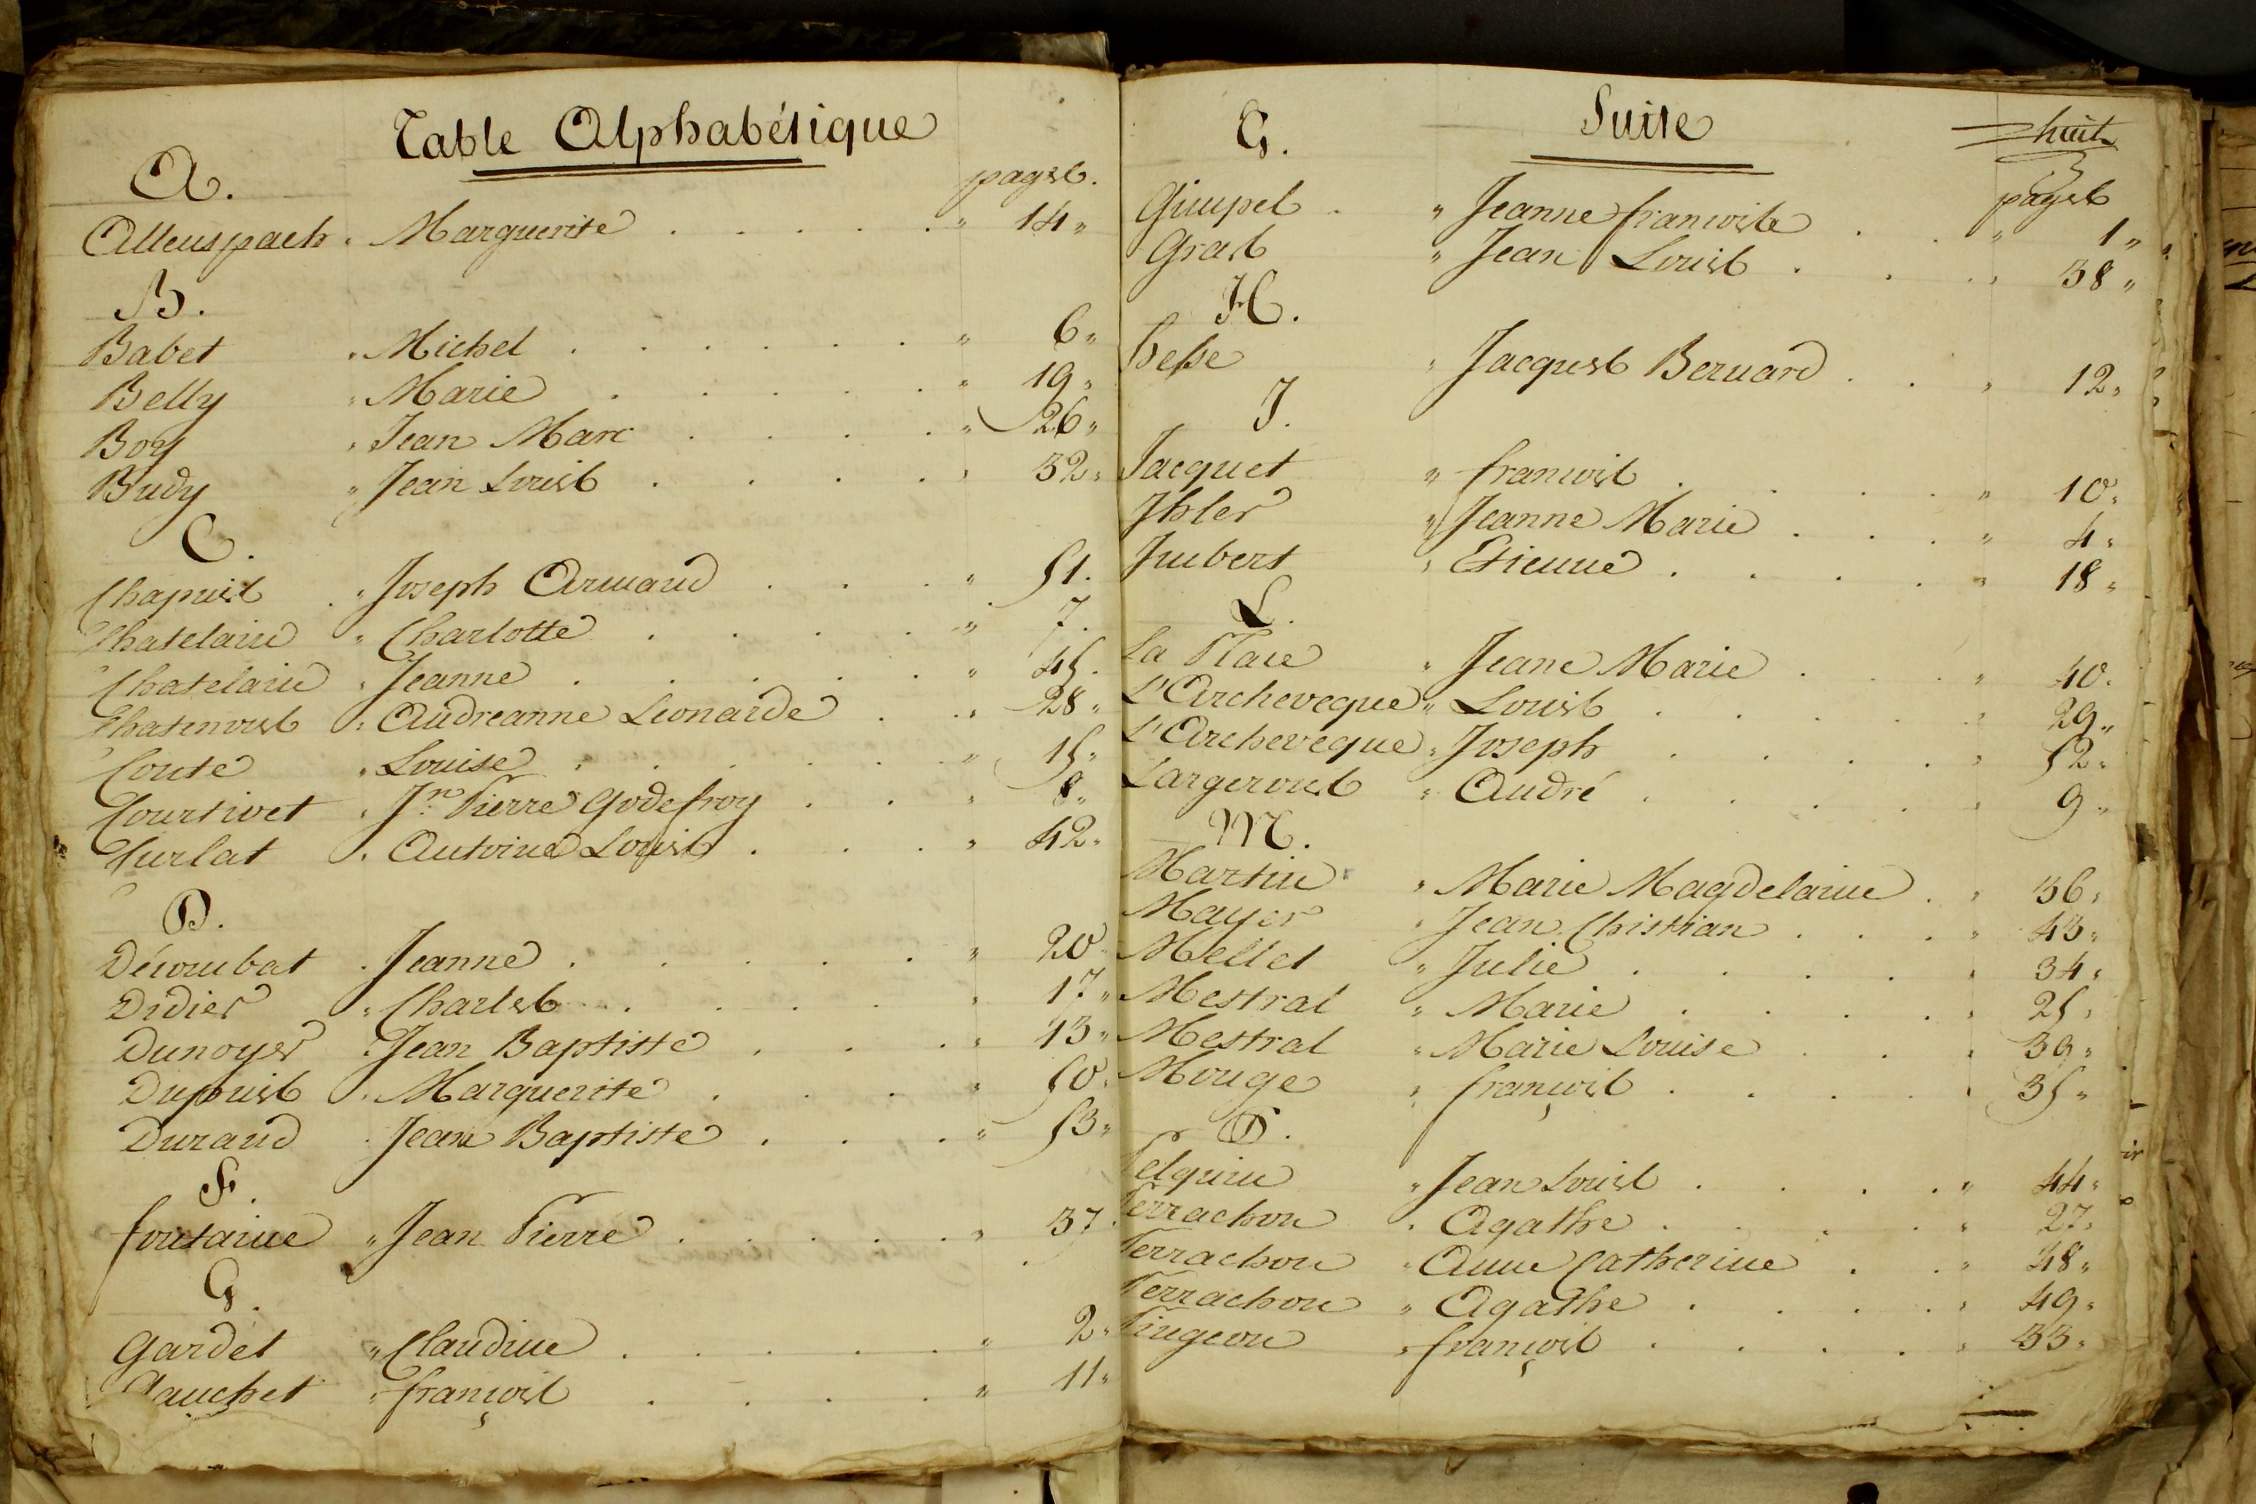 Table Alphabétique
pages.
A.
Allenspach " Marguerite . . . . . " 14 "
B.
Babet " Michel . . . . . " 6 "
Belly " Marie . . . . . " 19 "
Bory " Jean Marc . . . . " 26 "
Budy " Jean Louis . . . . " 32 "
C.
Chapuis " Joseph Armand . . . " 51.
Chatelain " Charlotte . . . . " 7.
Chatelain " Jeanne . . . . . " 45.
Chatenois " Andreanne Leonarde . . " 28 "
Conte " Louise . . . . . " 15 "
Courtivet " Jn. Pierre Godefroy . . " 8 "
Curlat " Antoine Louis . . . " 42 "
D.
Décombat " Jeanne . . . . . " 20
Didier " Charles . . . . " 17 "
Dunoyer " Jean Baptiste . . . " 13 "
Dupuis " Marguerite . . . " 50 "
Durand " Jean Baptiste . . . " 53 "
F.
fontaine " Jean Pierre . . . . " 37.
G.
Gardet " Claudine . . . . . " 2 "
Gauchet " françois . . . . " 11 "
Suite
huit
pages
G.
Gimpel . " Jeanne francoise . . " 1 "
Gras " Jean Louis . . . " 38 "
H.
hesse " Jacques Bernard . . " 12 "
J.
Jacquet " francois . . . . " 10 "
Ihler " Jeanne Marie . . . " 4 "
Imbert " Etienne . . . . " 18 "
L.
La Place " Jeane Marie . . . " 40.
L'Archeveque " Louis . . . . . " 29 "
L'Archeveque " Joseph . . . . " 52 "
Largerois " André . . . . . " 9 "
M.
Martin " Marie Magdelaine . " 36 "
Mayer " Jean Christian . . . " 43 "
Mellet " Julie . . . . . " 34 "
Mestral " Marie . . . . . " 25 "
Mestral " Marie Louise . . . " 39 "
Mouge " françois . . . . " 35 "
P.
Pelquin " Jean Louis . . . . " 44 "
Perrachon " Agathe . . . . " 27 "
Perrachon " Anne Catherine . . " 48 "
Perrachon " Agathe . . . . " 49 "
Pingeon " françois . . . . " 33 "